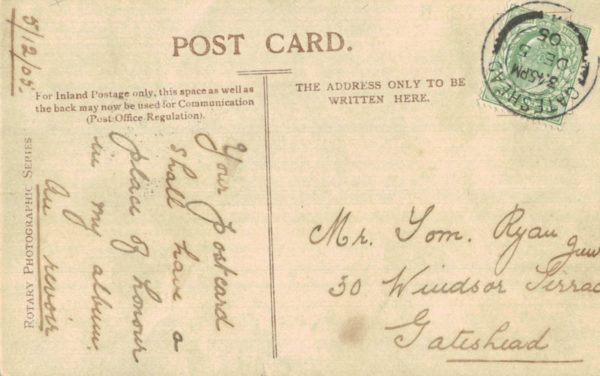 5/12/05.
POST CARD.
For Inland Postage only, this space as well as
the back may now be used for Communication
(Post Office Regulation).
THE ADDRESS ONLY TO BE
WRITTEN HERE.
ROTARY PHOTOGRAPHIC SERIES
Your postcard
shall have a
place of honour
in my album.
Au revoir
GATESHEAD
3.45PM
DE 5
05
Mr. Tom. Ryan
30 Windsor Terrac
Gateshead